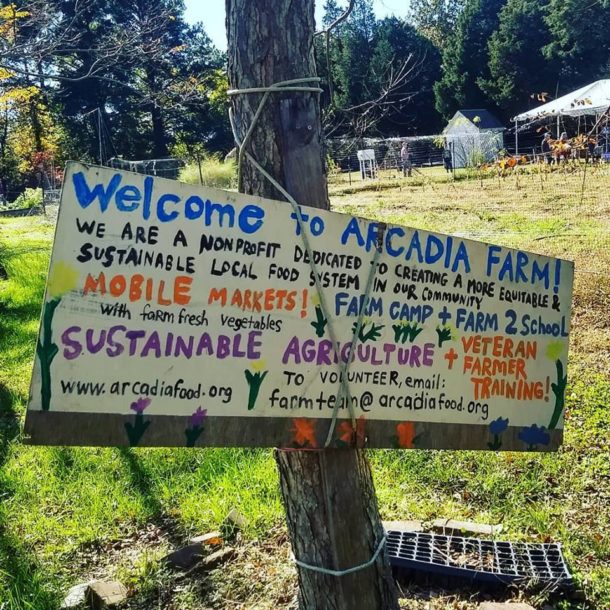 Welcome to ARCADIA FARM!
WE ARE A NONPROFIT DEDICATED TO CREATING A MORE EQUITABLE &
SUSTAINABLE LOCAL FOOD SYSTEM IN OUR COMMUNITY
MOBILE MARKETS!
with farm fresh vegetables
FARM CAMP + FARM 2 SCHOOL
SUSTAINABLE AGRICULTURE +
VETERAN
FARMER
TRAINING!
www.arcadiafood.org
TO VOLUNTEER, email:
farmteam@arcadiafood.org